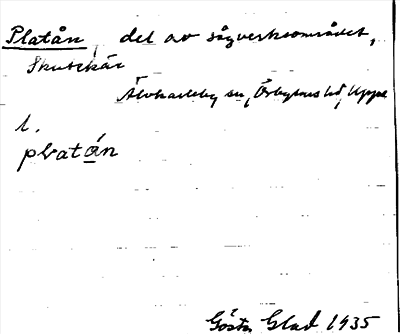 Platån, del av sågverksområdet,
Skutskär
Älvkarleby sn, Örbyhus hd, Uppl
1.
platån
Gösta Glad 1935